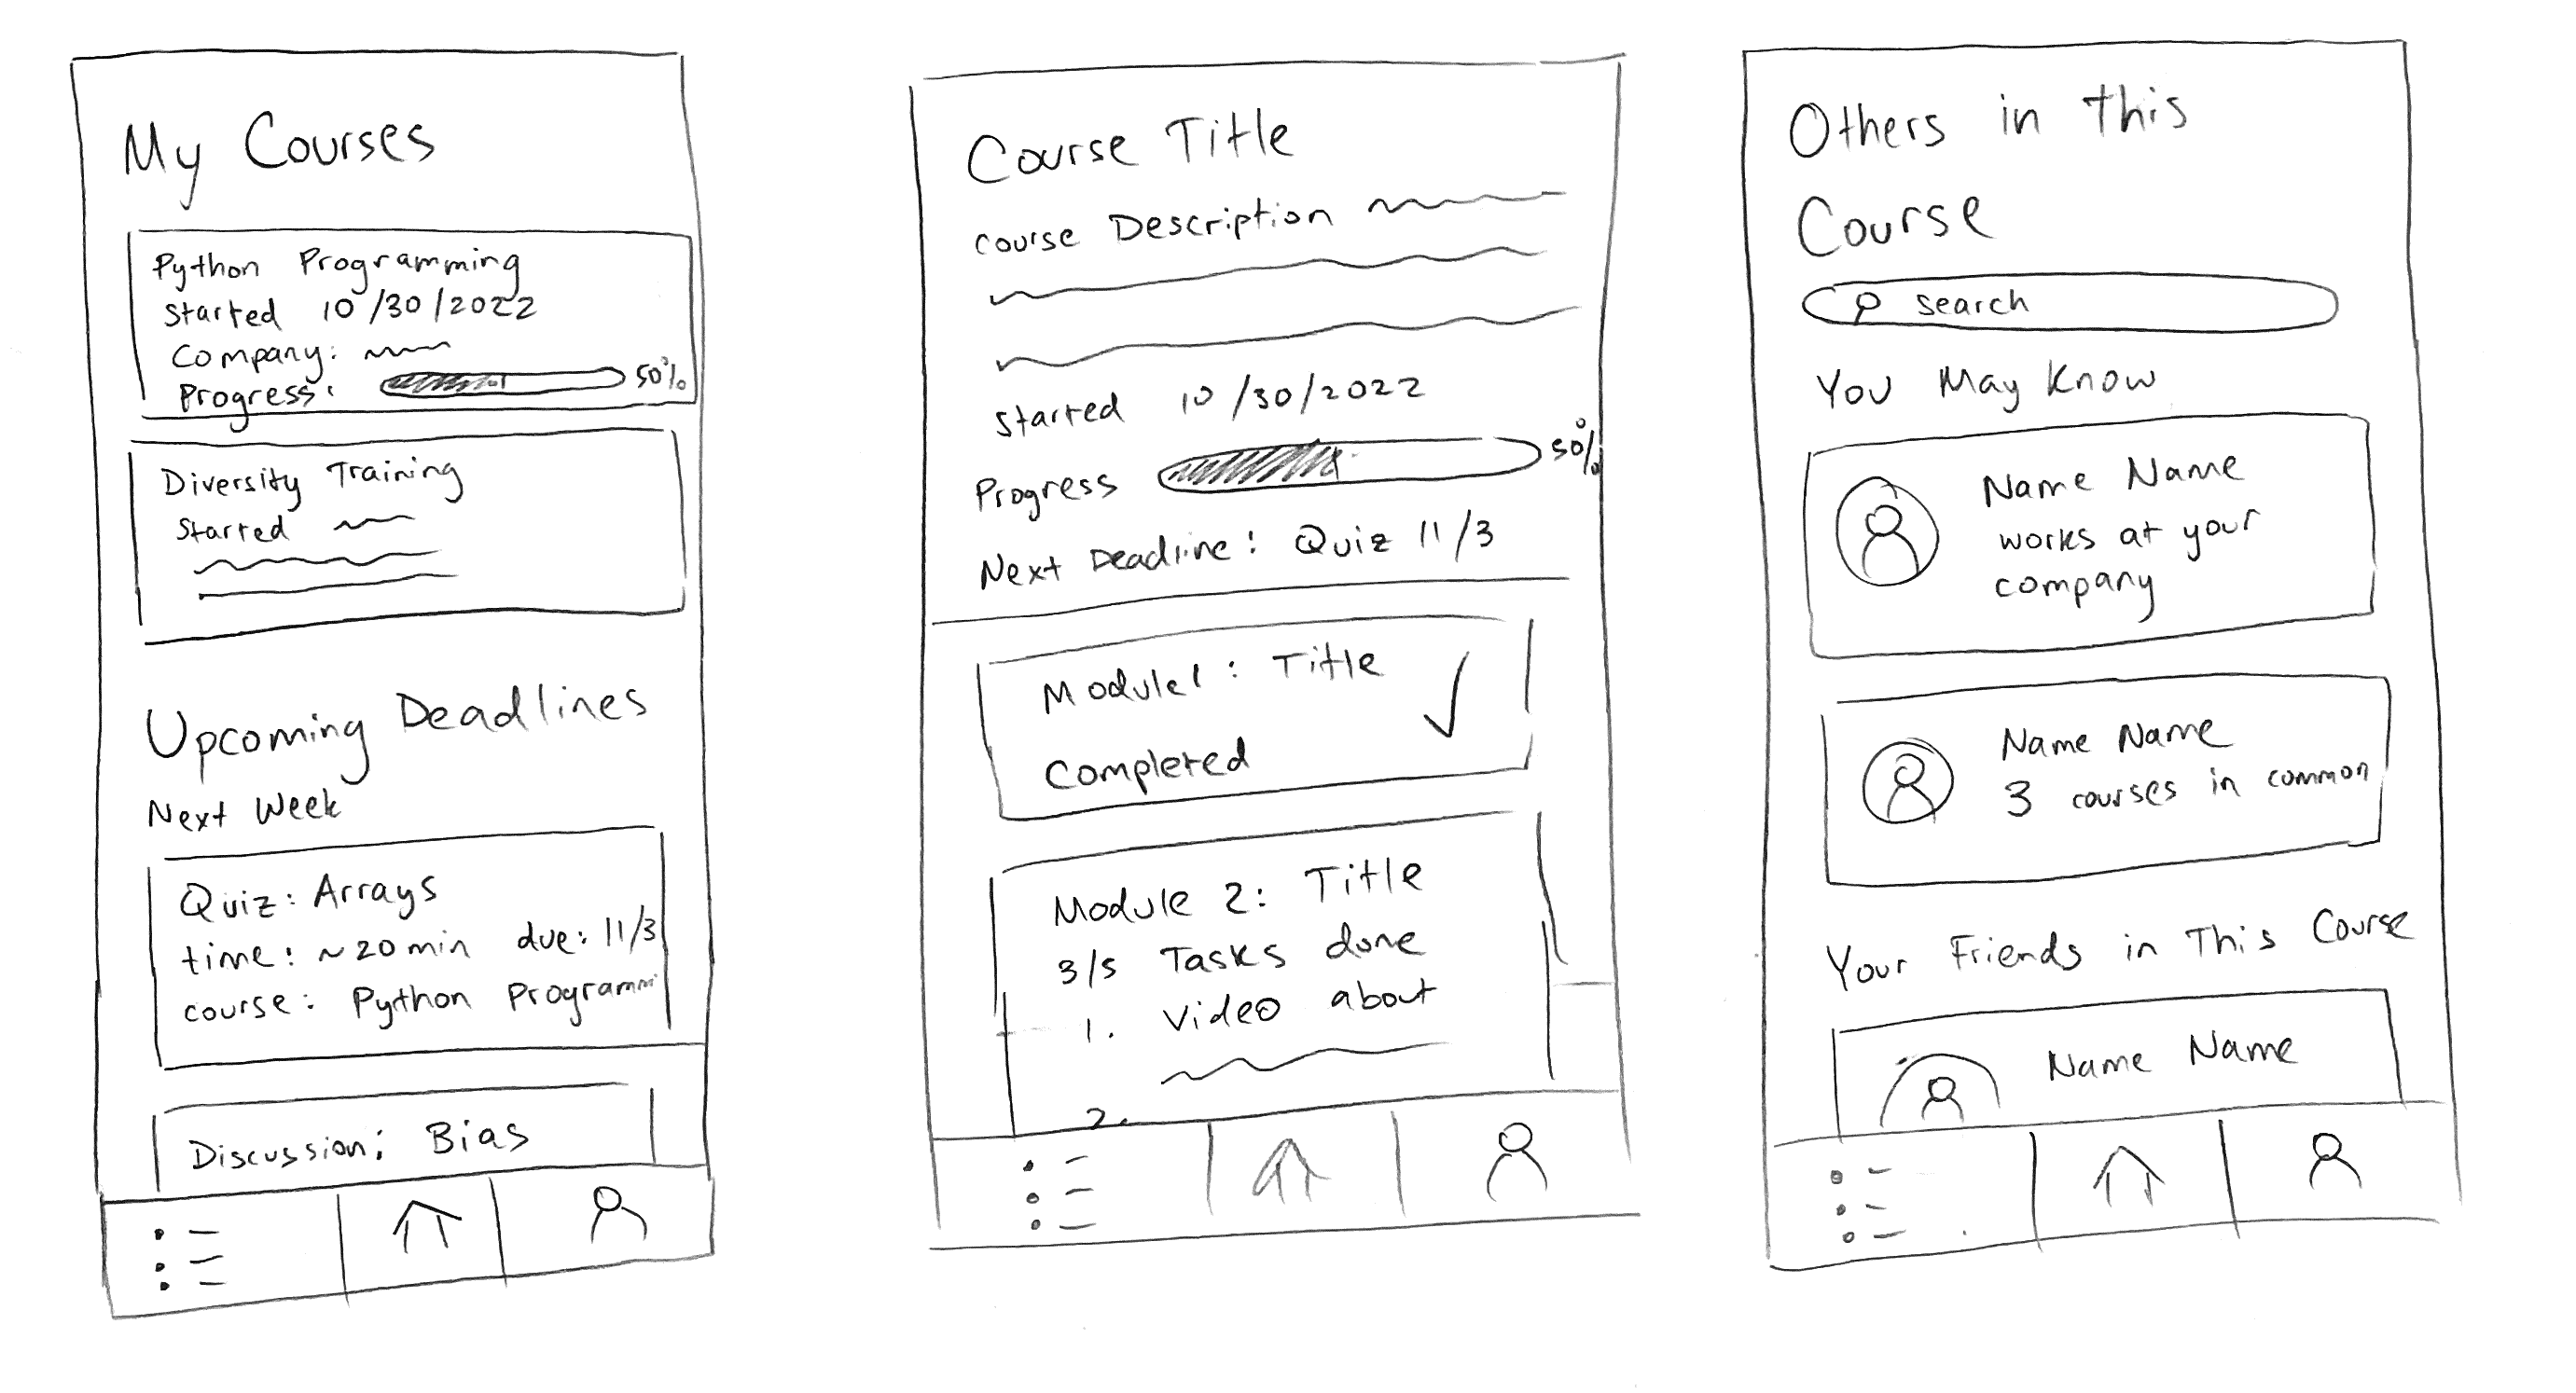 My Courses
Python Programming
Started 10/30/2022
Company:
Progress: 50%
Diversity Training
Started
Upcoming Deadlines
Next Week
Quiz: Arrays
time: ~20 min due: 11/3
course: Python Programm
Discussion: Bias
Course Title
course Description
Started 10/30/2022
Progress 50%
Next Deadline: Quiz 11/3
Module 1: Title
Completed
Module 2: Title
3/5 Tasks done
1. Video about
2.
Others in this
Course
search
You May Know
Name Name
works at your
company
Name Name
3 courses in common
Your Friends in This Course
Name Name